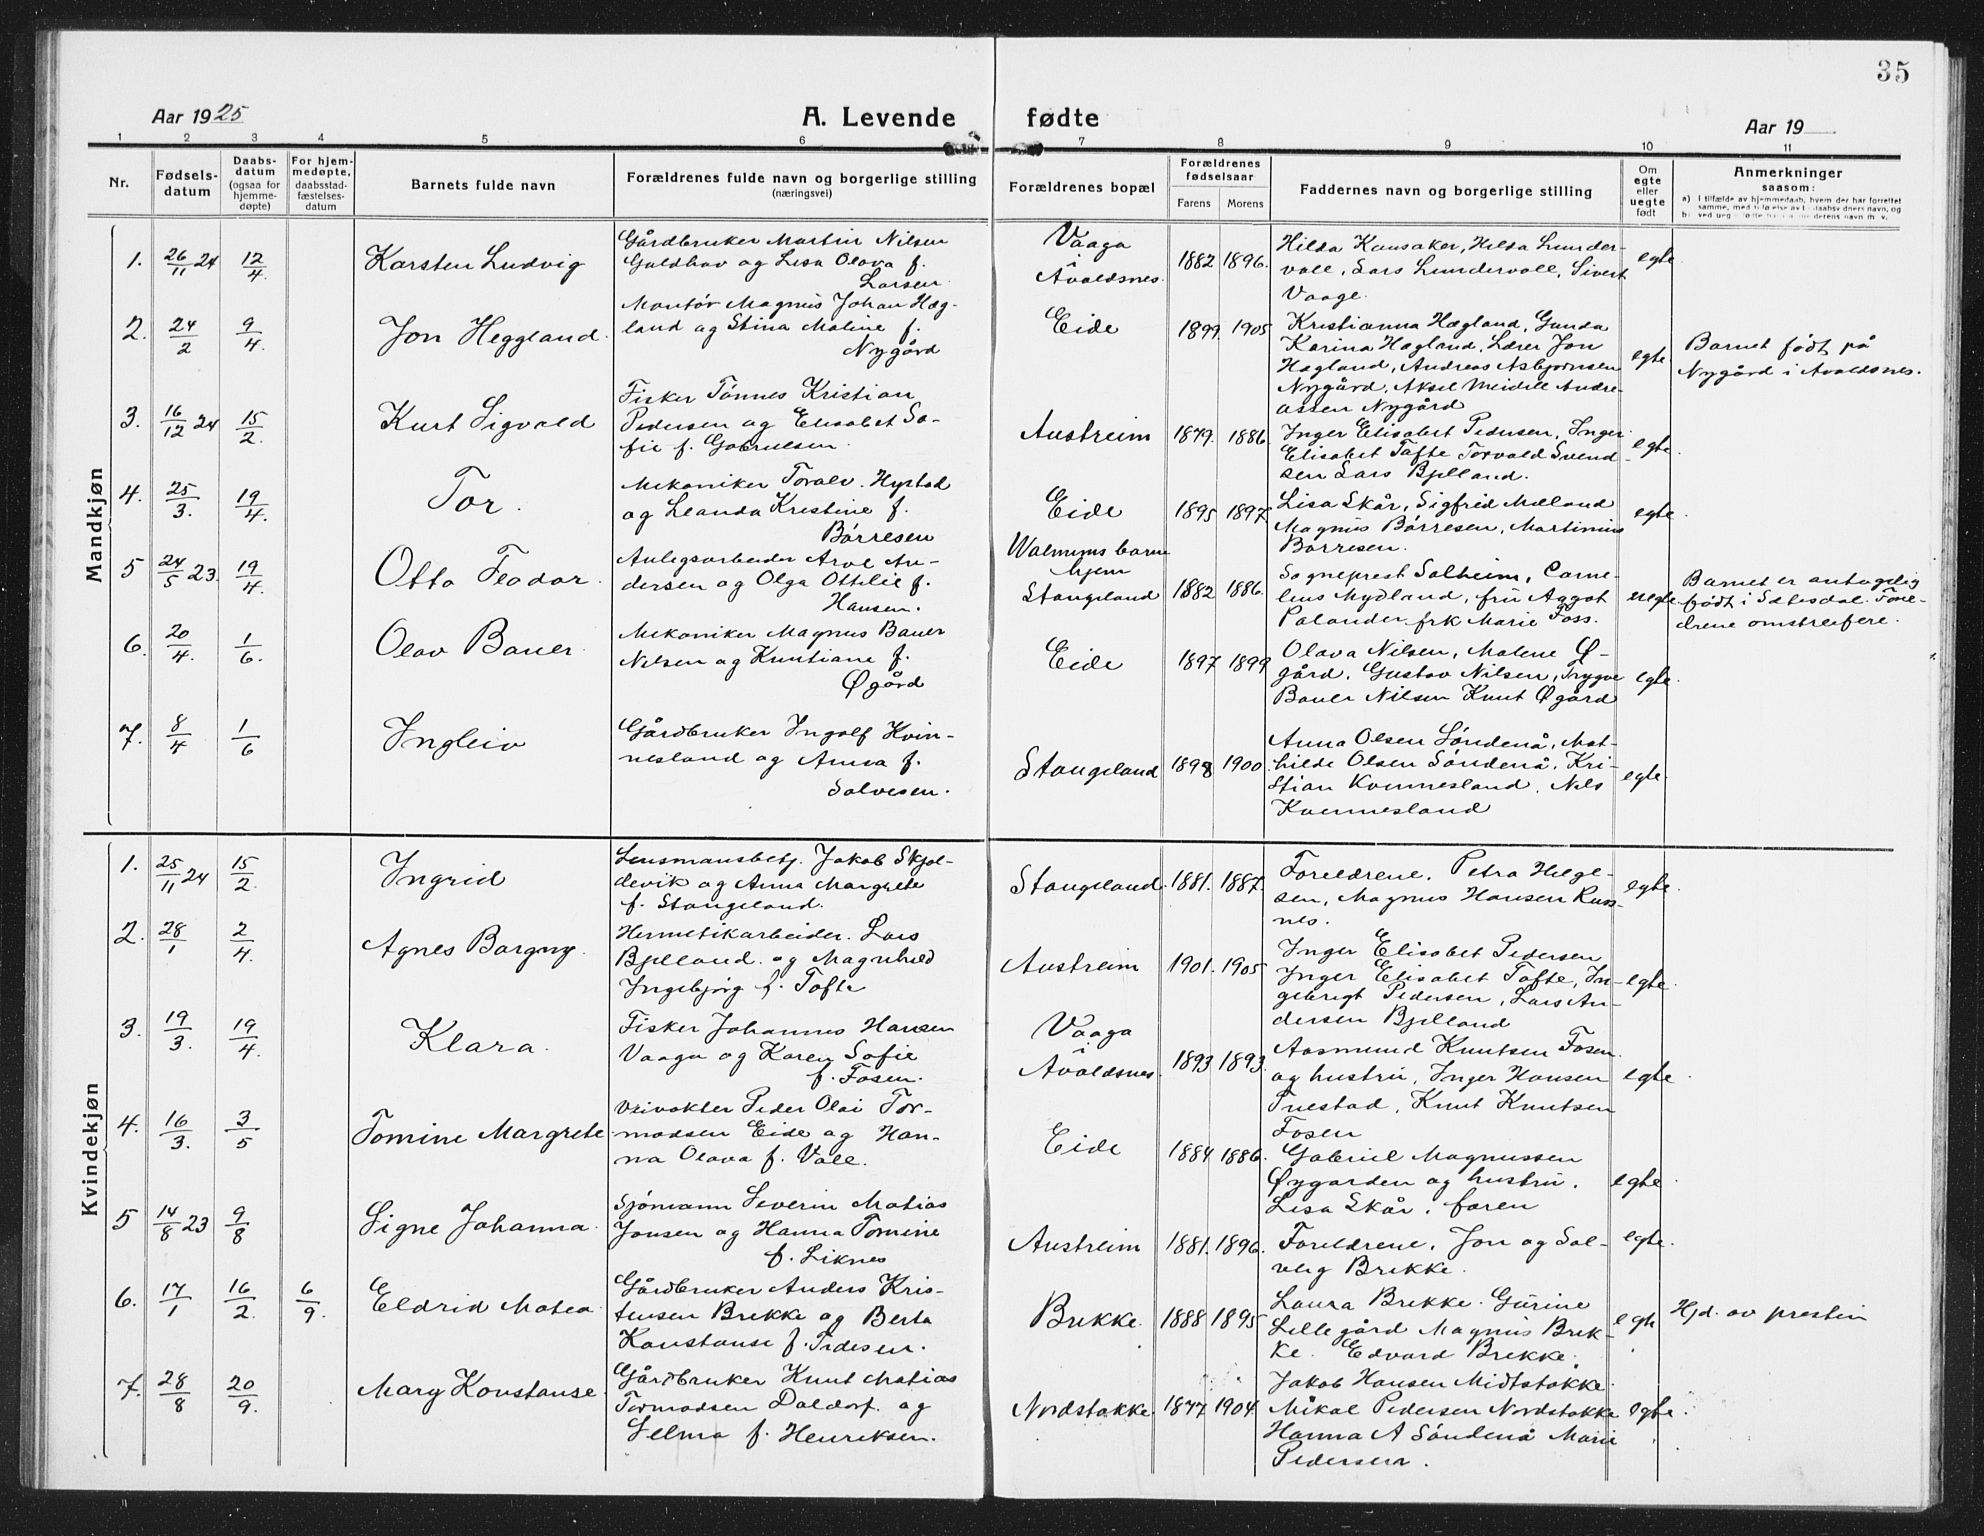 35
Aar 1925
A. Levende fødte
Aar 19
1 2 3 4 5 6 7 8 9 10 11
Nr.
Fødsels-
datum
Daabs-
datum
(ogsaa for
hjemme-
døpte)
For hjem-
medøpte,
daabsstad-
fæstelses-
datum
Barnets fulde navn
Forældrenes fulde navn og borgerlige stilling
(næringsvei)
Forældrenes bopæl
Forældrenes
fødselsaar
Farens Morens
Faddernes navn og borgerlige stilling
Om
egte
eller
uegte
født
Anmerkninger
saasom:
a) I tilfælde av hjemmedaab, hvem der har forrettet
samme, med
Mandkjøn
1. 26/11 24 12/4 Karsten Ludvig
Gårdbruker Martin Nilsen
Galdhav og Lisa Olava f.
Larsen
Vaaga
i
Avaldsnes
1882 1896.
Hilda Kausaker, Hilda Lunder-
voll, Lars Lundervoll, Sivert
Vaage.
egte
2. 24/2 9/4. Jon Heggland.
Montør Magnus Johan Hæg-
land og Stina Malene f.
Nygård
Eide 1899. 1905
Kristianna Hægland, Gunda
Karina Hægland, Lærer Jon
Hægland, Andreas Asbjørnsen
Nygård, Aksel Meidell Andre-
assen Nygård
egte.
Barnet født på
Nygård i Avaldsnes.
3. 16/12 24 15/2. Kurt Sigvald
Fisker Tønnes Kristian
Pedersen og Elisabet So-
fie f. Gabrielsen.
Austreim 1879. 1886.
Inger Elisabet Pedersen, Inger
Elisabet Tafte Torvald Svend-
sen Lars Bjelland.
egte.
4. 25/3. 19/4. Tor.
Mekaniker Toralv. Hystad
og Leanda Kristine f.
Børresen
Eide 1895 1897
Lisa Skår, Sigfrid Mæland
Magnus Børresen, Martinius
Børresen.
egte.
5 24/5 23. 19/4. Otto Feodor.
Anlegsarbeider Arve An-
dersen og Olga Ottilie f.
Hansen.
barne
hjem
Stangeland 1882 1886.
Sogneprest Solheim, Corne-
lius Mydland, fru Aggot
Palander frk Marie Foss.
uegte
Barnet er antagelig
født i Setesdal. Fore-
drene omstreifere.
6. 20/4. 1/6. Olav Bauer.
Mekaniker Magnus Bauer
Nilsen og Kristiane f.
Øgård
Eide 1897 1899
Olava Nilsen, Malene Ø-
gård, Gustav Nilsen, Trygve
Bauer Nilsen Knut Øgård
egte.
7. 8/4 1/6 Ingleiv
Gårdbruker Ingolf Kvin-
nesland og Anna f.
Salvesen.
Stangeland 1898 1900.
Anna Olsen Søndenå, Mat-
hilde Olsen Søndenå, Kri-
stian Kvinnesland, Nils
Kvinnesland
egte.
Kvindekjøn
1. 25/11 24 15/2. Ingrid
Lensmansbetj. Jakob Skjol-
devik og Anna Margrete
f. Stangeland.
Stangeland. 1881. 1887.
Foreldrene, Petra Helge-
sen, Magnus Hansen Russ-
nes.
egte.
2. 28/1 2/4. Agnes Borgny.
Hermetikarbeider. Lars
Bjelland. og Magnhild
Ingebjørg f. Tofte
Austreim 1901. 1905
Inger Elisabet Pedersen
Inger Elisabet Tofte, In-
gebrigt Pedersen, Lars An-
dersen Bjelland
egte.
3. 19/3. 19/4. Klara.
Fisker Johannes Hansen
Vaaga og Karen Sofie
f. Fosen.
Vaaga
i
Avaldsnes. 1893 1893.
Aasmund Knutsen Fosen.
og hustru, Inger Hansen
Tuestad, Knut Knutsen
Fosen
egte.
4. 16/3. 3/5 Tomine Margrete
Vrivakter Peder Olai Tor-
madsen Eide og Han-
na Olava f. Våle.
Eide 1884 1886.
Gabriel Magnussen
Øygarden og hustru,
Lisa Skår, faren
egte.
5 14/8 23 9/8 Signe Johanna.
Sjømann Severin Matias
Jonsen og Hanna Tomine
f. Liknes
Austreim 1881. 1896.
Foreldrene, Jon og Sol-
veig Brekke.
egte.
6. 17/1 16/2. 6/9. Eldrid Matea.
Gårdbruker Anders Kris-
tensen Brekke og Berta
Konstanse f. Pedersen.
Brekke. 1888 1895
Laura Brekke. Gurine
Lillegård Magnus Brek-
ke. Edvard Brekke.
egte
Hjd. av presten
7. 28/8 20/9. Mary Konstanse.
Gårdbruker Knut Matias
Tormodsen Daldorf. og
Selma f. Henriksen.
Nordstokke. 1877 1904.
Jakob Hansen Midtstokke.
Mikal Pedersen Nordstokke
Hanna A Søndenå Marie
Pedersen.
egte.